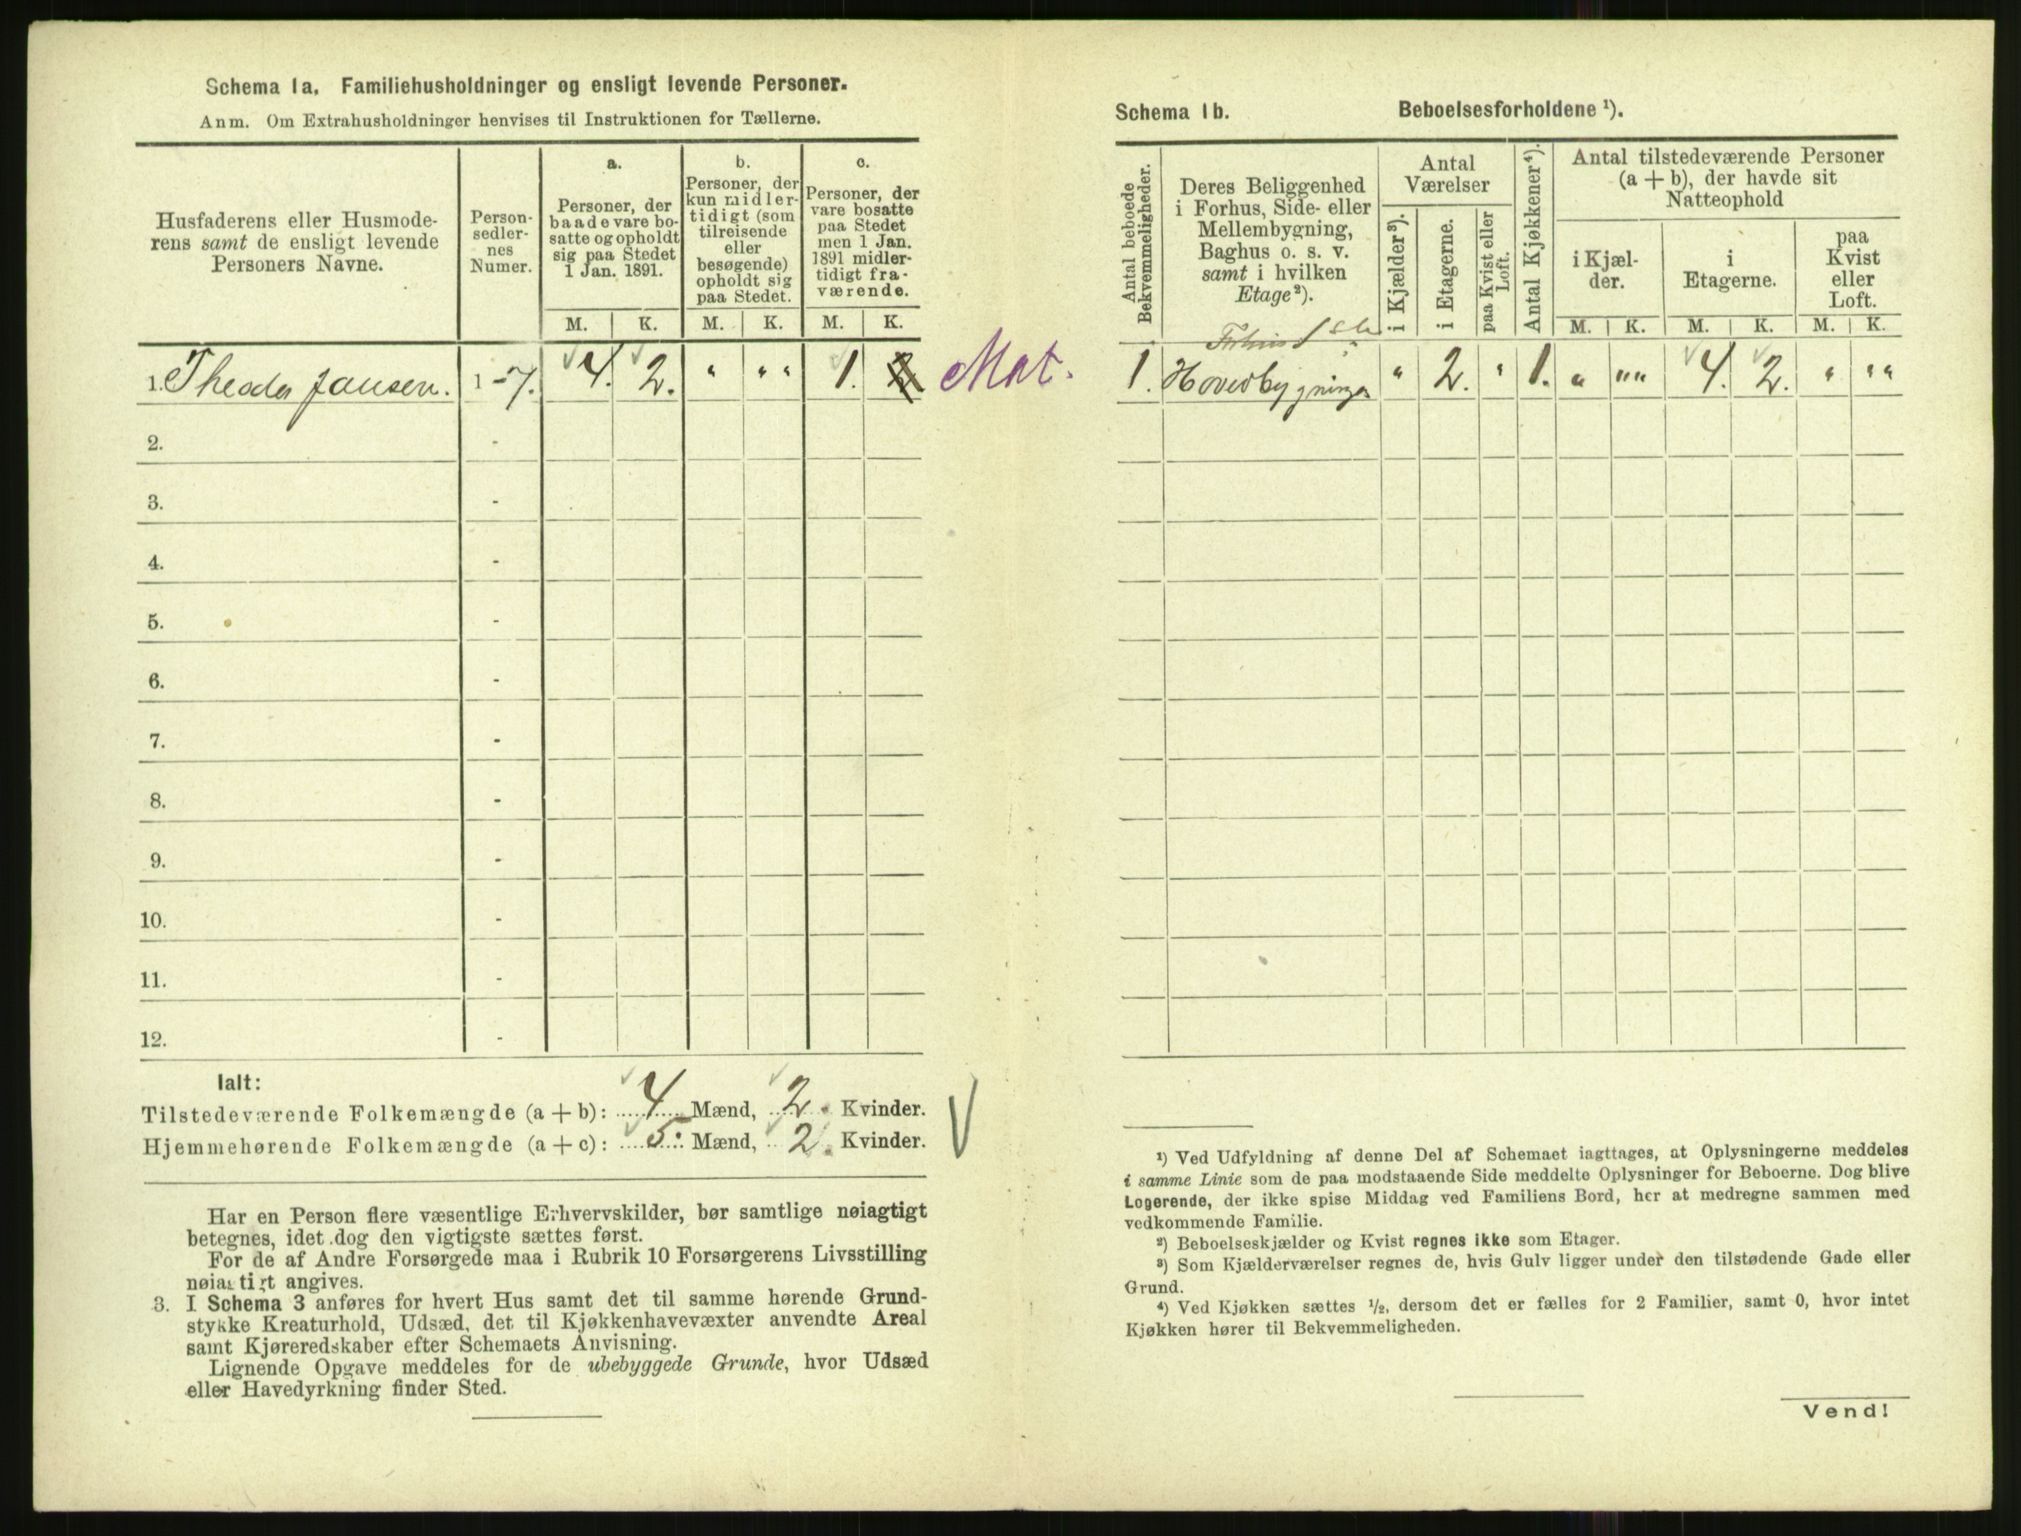 Schema 1a. Familiehusholdninger og ensligt levende Personer.
Anm. Om Extrahusholdninger henvises til Instruktionen for Tællerne.
Husfaderens eller Husmode-
rens samt de ensligt levende
Personers Navne.
Person-
sedler-
nes
Numer.
a.
Personer, der
baade vare bo-
satte og opholdt
sig paa Stedet
1 Jan. 1891.
b.
Personer, der
kun midler-
tidigt (som
tilreisende
eller
besøgende)
opholdt sig
paa Stedet.
c.
Personer, der
vare bosatte
paa Stedet
men 1 Jan.
1891 midler-
tidigt fra-
værende.
M. K. M. K. M. K.
1. Theodor Jansen. 1 - 7. 4. 2. " " " 1. 2 Mat.
2. -
3. -
4. -
5. -
6. -
7. -
8. -
9. -
10. -
11. -
12. -
Ialt:
Tilstedeværende Folkemængde (a + b): 4 Mænd, 2. Kvinder.
Hjemmehørende Folkemængde (a + c): 5. Mænd, 2. Kvinder.
Har en Person flere væsentlige Erhvervskilder, bør samtlige nøiagtigt
betegnes, idet dog den vigtigste sættes først.
For de af Andre Forsørgede maa i Rubrik 10 Forsørgerens Livsstilling
nøiagtigt angives.
3. I Schema 3 anføres for hvert Hus samt det til samme hørende Grund-
stykke Kreaturhold, Udsæd, det til Kjøkkenhavevæxter anvendte Areal
samt Kjøreredskaber efter Schemaets Anvisning.
Lignende Opgave meddeles for de ubebyggede Grunde, hvor Udsæd
eller Havedyrkning finder Sted.
Schema 1b. Beboelsesforholdene ¹).
Antal beboede
Bekvemmeligheder.
Deres Beliggenhed
i Forhus, Side- eller
Mellembygning,
Baghus o. s. v.
samt i hvilken
Etage²).
Antal
Værelser
i Kjælder³).
i Etagerne.
paa Kvist eller
Loft.
Antal Kjøkkener⁴).
Antal tilstedeværende Personer
(a + b), der havde sit
Natteophold
i Kjæl-
der.
i
Etagerne.
paa
Kvist
eller
Loft.
M. K. M. K. M. K.
1. Hovedbygningen " 2. " 1. " "" 4. 2. " " "
¹) Ved Udfyldning af denne Del af Schemaet iagttages, at Oplysningerne meddeles
i samme Linie som de paa modstaaende Side meddelte Oplysninger for Beboerne. Dog blive
Logerende, der ikke spise Middag ved Familiens Bord, her at medregne sammen med
vedkommende Familie.
²) Beboelseskjælder og Kvist regnes ikke som Etager.
³) Som Kjælderværelser regnes de, hvis Gulv ligger under den tilstødende Gade eller
Grund.
⁴) Ved Kjøkken sættes ½, dersom det er fælles for 2 Familier, samt 0, hvor intet
Kjøkken hører til Bekvemmeligheden.
Vend!